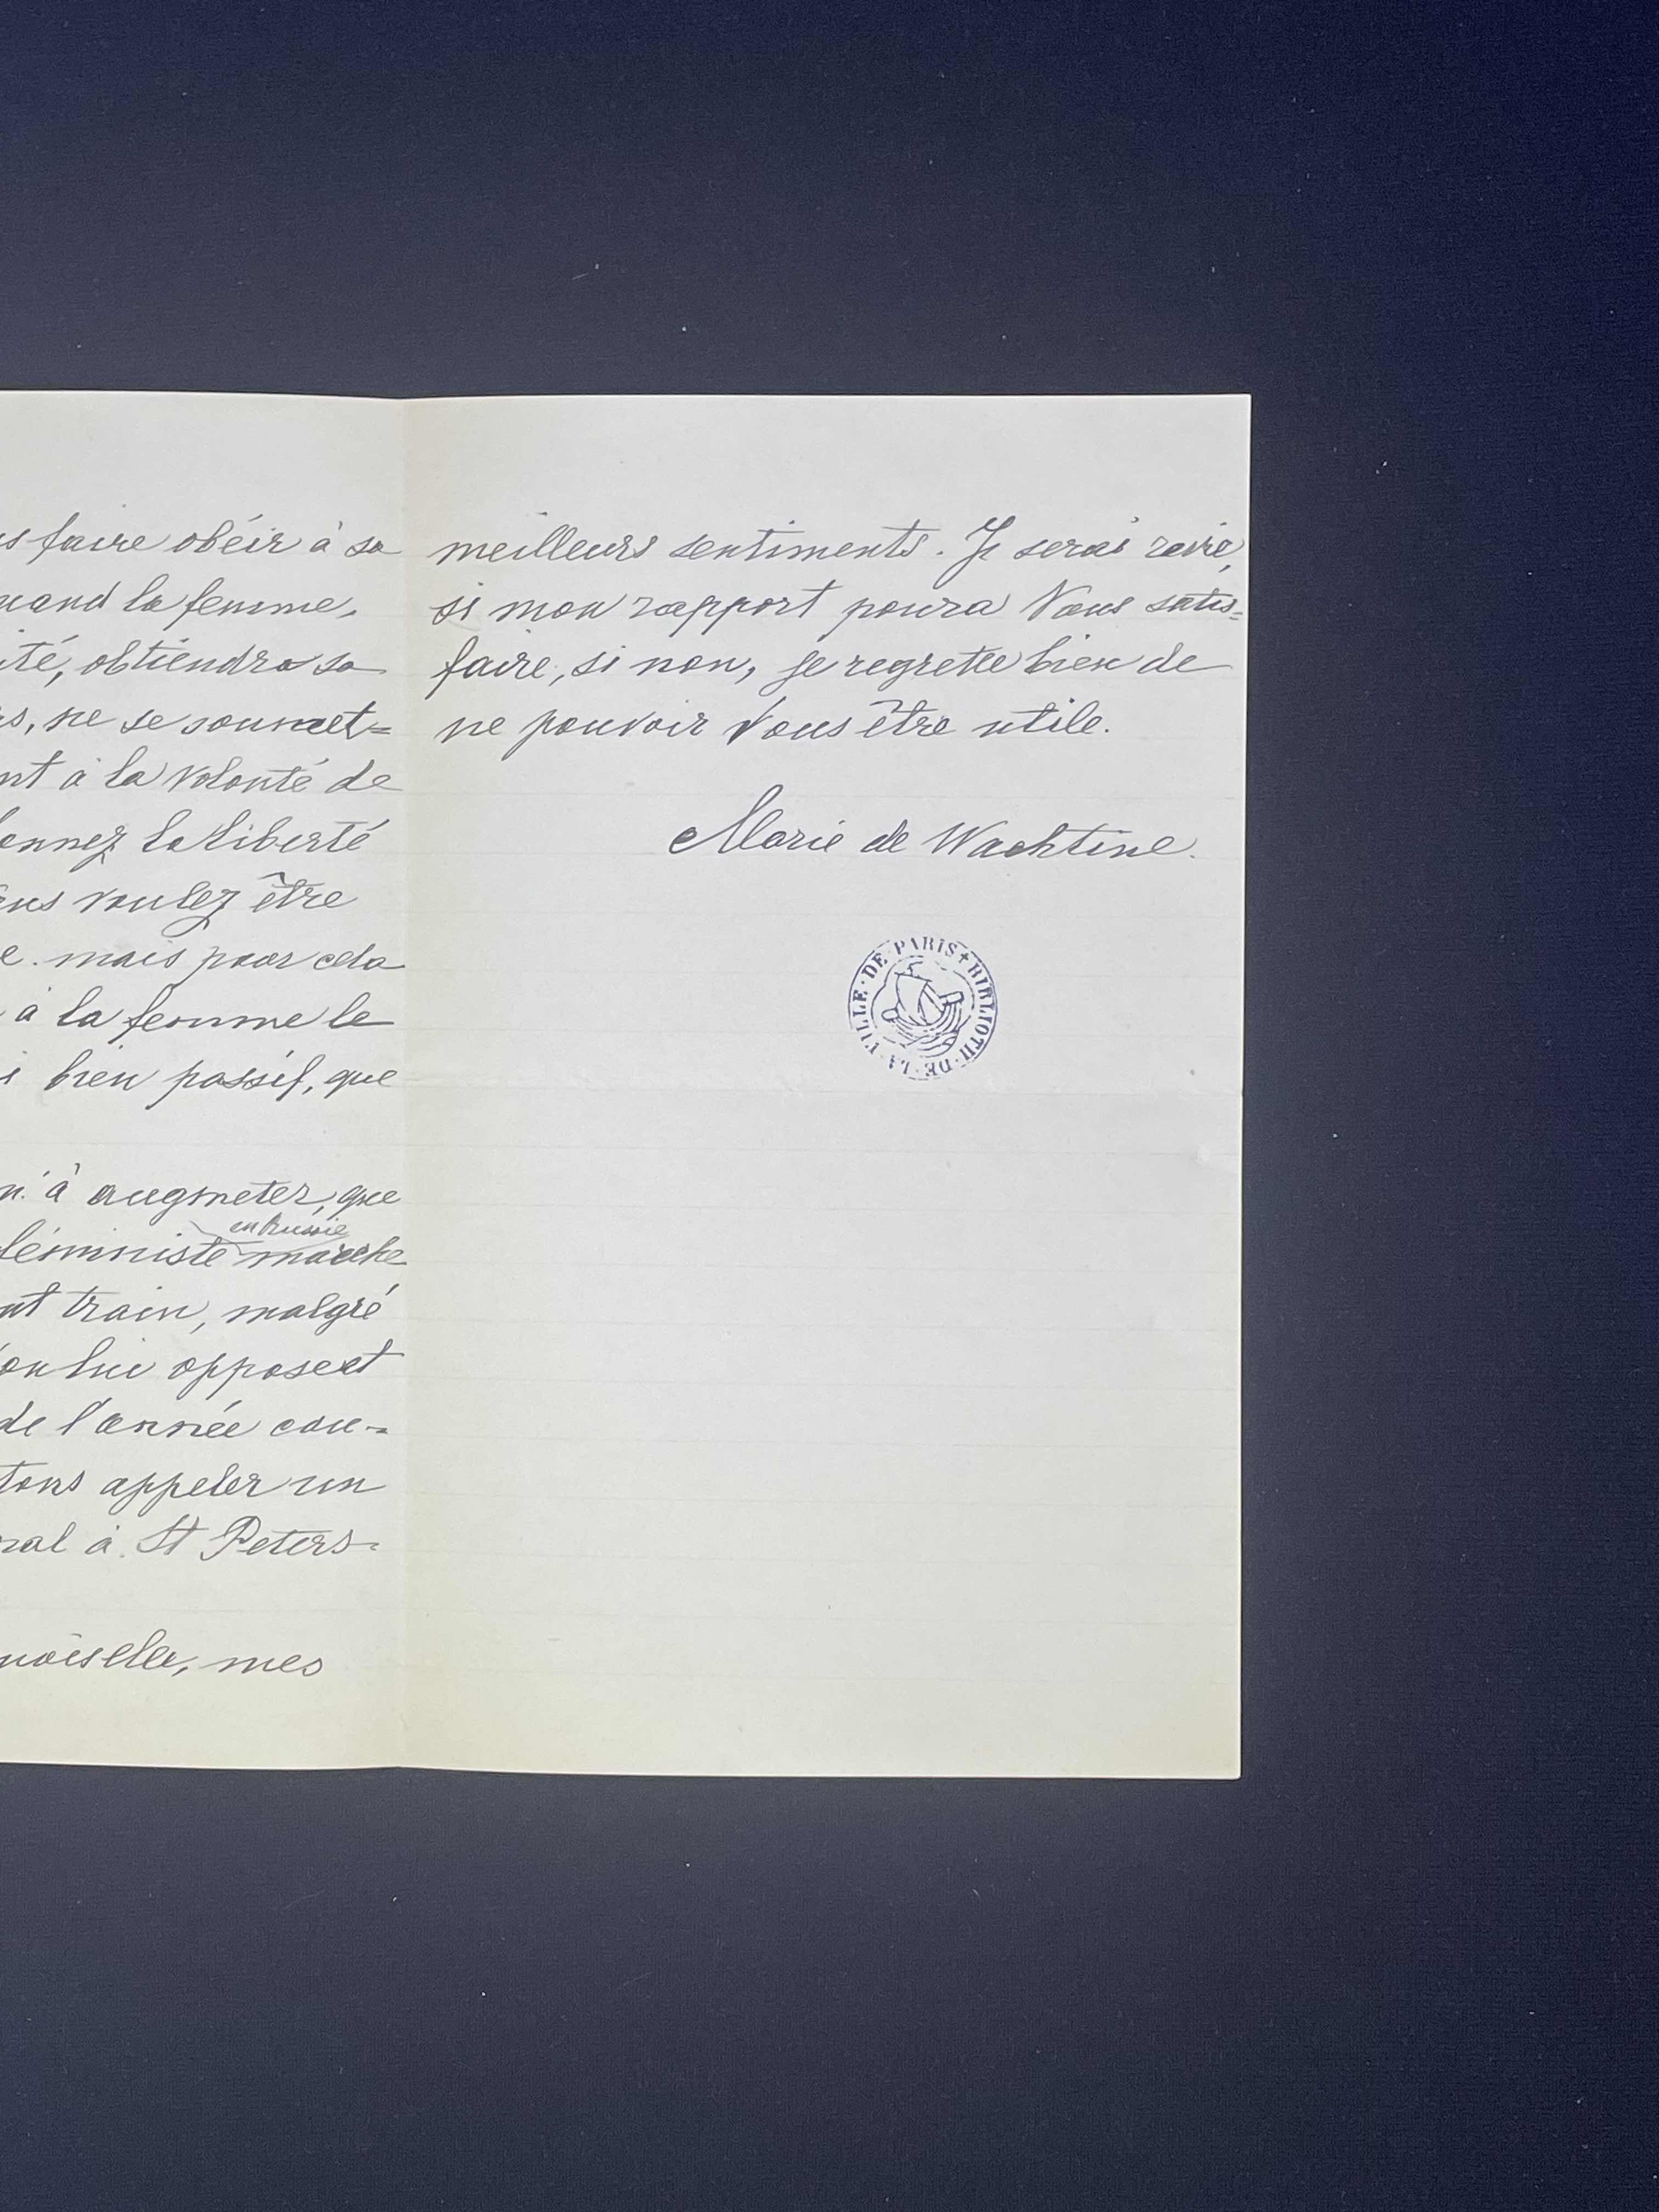 s faire obéir à sa
uand la femme,
ité, obtiendra sa
s, ne se soumet=
nt à la volonté de
onnez la liberté
ous voulez être
e. mais pour cela
à la femme le
i bien passif, que
n'a augmeter, que
en Russie
féministe marche
nt train, malgré
on lui oppose et
de l'année cou-
tons appeler un
ral à St Peters-
moiselle, mes
meilleurs sentiments. Je serai ravie,
si mon rapport poura Vous satis=
faire, si non, je regrette bien de
ne pouvoir Vous être utile.
Marie de Wachtine.
BIBLIOTH·DE·LA·VILLE·DE·PARIS